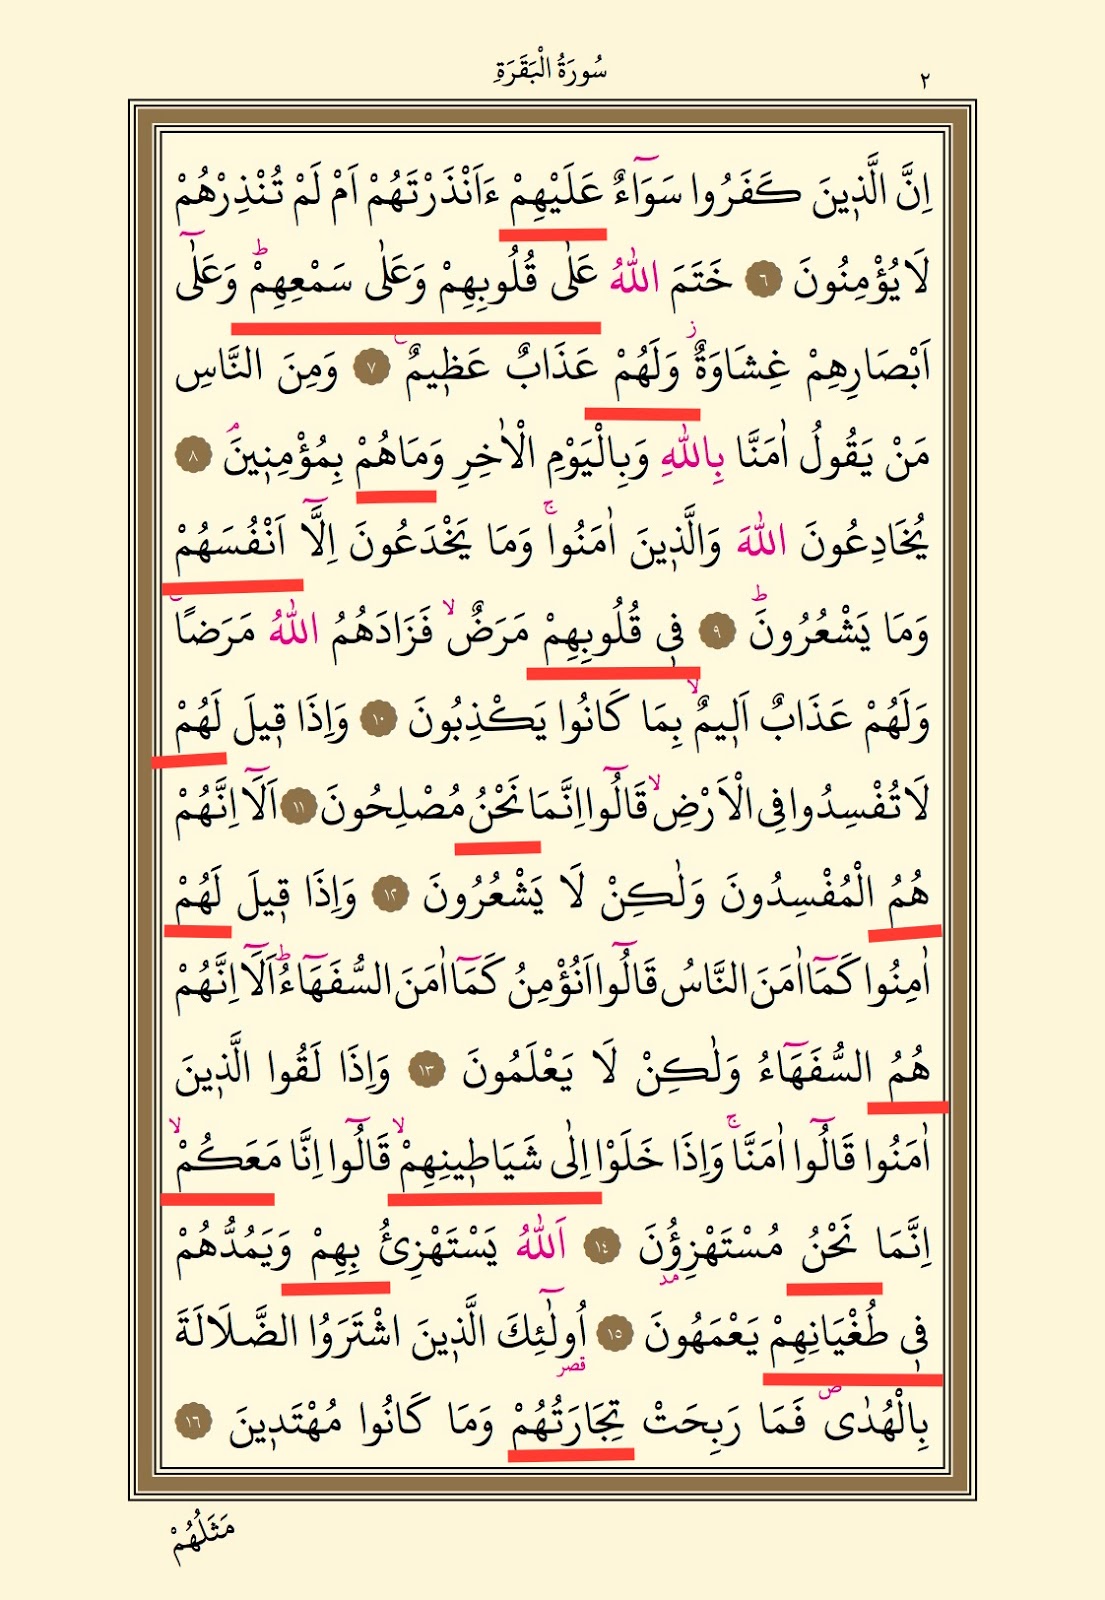 سُورَةُ الْبَقَرَةِ
٢
اِنَّ الَّذ۪ينَ كَفَرُوا سَوَٓاءٌ عَلَيْهِمْ ءَاَنْذَرْتَهُمْ اَمْ لَمْ تُنْذِرْهُمْ
لَا يُؤْمِنُونَ ٦ خَتَمَ اللّٰهُ عَلٰى قُلُوبِهِمْ وَعَلٰى سَمْعِهِمْۜ وَعَلٰٓى
اَبْصَارِهِمْ غِشَاوَةٌۘ وَلَهُمْ عَذَابٌ عَظ۪يمٌ۟ ٧ وَمِنَ النَّاسِ
مَنْ يَقُولُ اٰمَنَّا بِاللّٰهِ وَبِالْيَوْمِ الْاٰخِرِ وَمَاهُمْ بِمُؤْمِن۪ينَۢ ٨
يُخَادِعُونَ اللّٰهَ وَالَّذ۪ينَ اٰمَنُواۚ وَمَا يَخْدَعُونَ اِلَّٓا اَنْفُسَهُمْ
وَمَا يَشْعُرُونَۜ ٩ ف۪ي قُلُوبِهِمْ مَرَضٌۙ فَزَادَهُمُ اللّٰهُ مَرَضًاۚ
وَلَهُمْ عَذَابٌ اَل۪يمٌۙ بِمَا كَانُوا يَكْذِبُونَ ١٠ وَاِذَا ق۪يلَ لَهُمْ
لَا تُفْسِدُوا فِي الْاَرْضِۙ قَالُٓوا اِنَّمَا نَحْنُ مُصْلِحُونَ ١١ اَلَٓا اِنَّهُمْ
هُمُ الْمُفْسِدُونَ وَلٰكِنْ لَا يَشْعُرُونَ ١٢ وَاِذَا ق۪يلَ لَهُمْ
اٰمِنُوا كَمَٓا اٰمَنَ النَّاسُ قَالُٓوا اَنُؤْمِنُ كَمَٓا اٰمَنَ السُّفَهَٓاءُۜ اَلَٓا اِنَّهُمْ
هُمُ السُّفَهَٓاءُ وَلٰكِنْ لَا يَعْلَمُونَ ١٣ وَاِذَا لَقُوا الَّذ۪ينَ
اٰمَنُوا قَالُٓوا اٰمَنَّاۚ وَاِذَا خَلَوْا اِلٰى شَيَاط۪ينِهِمْۙ قَالُٓوا اِنَّا مَعَكُمْۙ
اِنَّمَا نَحْنُ مُسْتَهْزِؤُ۫نَ ١٤ اَللّٰهُ يَسْتَهْزِئُ بِهِمْ وَيَمُدُّهُمْ
ف۪ي طُغْيَانِهِمْ يَعْمَهُونَ ١٥ اُو۬لٰٓئِكَ الَّذ۪ينَ اشْتَرَوُا الضَّلَالَةَ
بِالْهُدٰىۖ فَمَا رَبِحَتْ تِجَارَتُهُمْ وَمَا كَانُوا مُهْتَد۪ينَ ١٦
مَثَلُهُمْ